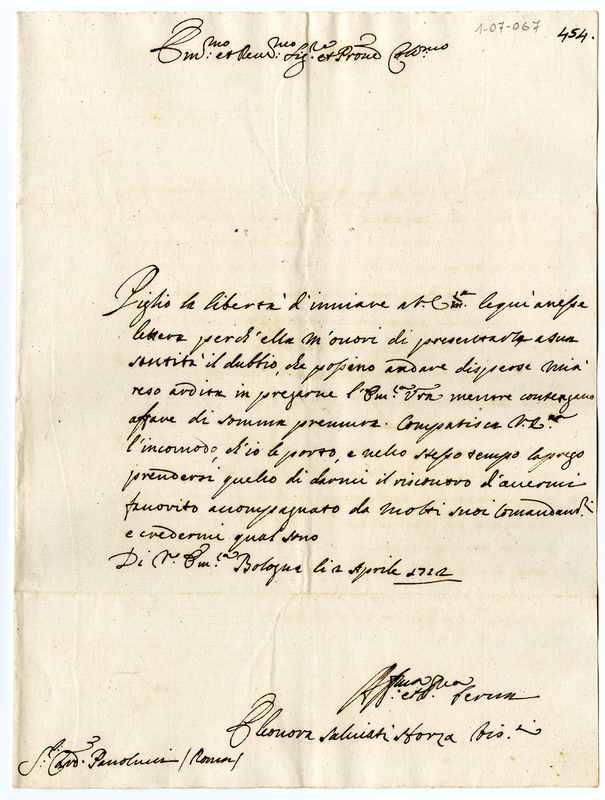 1-07-067
454.
Em.mo et Reu.mo Sig.re et Prone Col.mo
Piglio la libertà d'inuiare a V. Em.za le qui anesse
lettere perch'ella m'onori di presentarle a sua
santità il dubbio, che possino andare disperse mi à
reso ardita in pregarne l'Em.za Vra mentre contengano
affare di somma premura. Compatisca V. E.
l'incomodo, ch'io le porto, e nello stesso tempo la prego
prendersi quello di darmi il riscontro d'auermi
fauorito accompagnato da molti suoi Comandam.ti
e credermi qual sono
Di V. Em.za Bologna li 2 Aprile 1722
Aff.ma et D. Serua
Eleonora Saluiati Sforza Vis.ti
S.r Card. Paulucci (Roma)